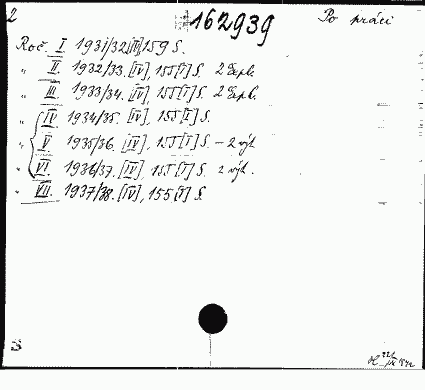 2 162939 Po práci
Roč. I 1931/32 [IV] 159 S.
" II. 1932/33. [IV], 155 [I] S. 2 Expl.
" III. 1933/34. [IV], 155 [I] S. 2 Expl.
" IV 1934/35. [IV], 155 [I] S.
" V 1935/36. [IV], 155 [I] S. – 2 výt
" VI. 1936/37. [IV], 155 [I] S. 2 výt.
" VII. 1937/38. [IV], 155 [I] S.